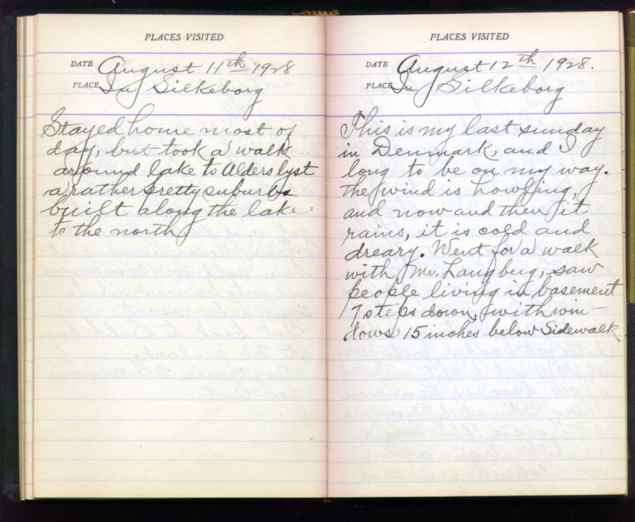 PLACES VISITED
DATE August 11th 1928
PLACE In Silkeborg
Stayed home most of
day, but took a walk
around lake to Alderslyst
a rather pretty suburb
built along the lake
to the north
PLACES VISITED
DATE August 12th 1928.
PLACE In Silkeborg
This is my last sunday
in Denmark, and I
long to be on my way.
the wind is howling,
and now and then it
rains, it is cold and
dreary. Went for a walk
with Mr. Langberg, saw
people living in basement
7 steps down, with win-
dows 15 inches below Sidewalk